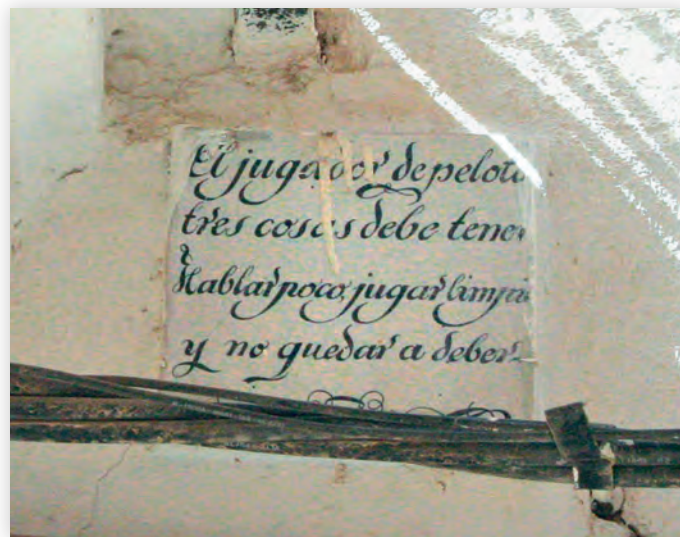 El jugador de pelota
tres cosas debe tener
Hablar poco, jugar limpio
y no quedar a deber